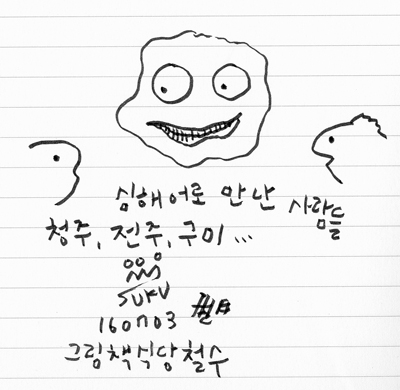 심해어로 만난 사람들
청주, 전주, 구미 ...
SURU
160703
그림책식당철수